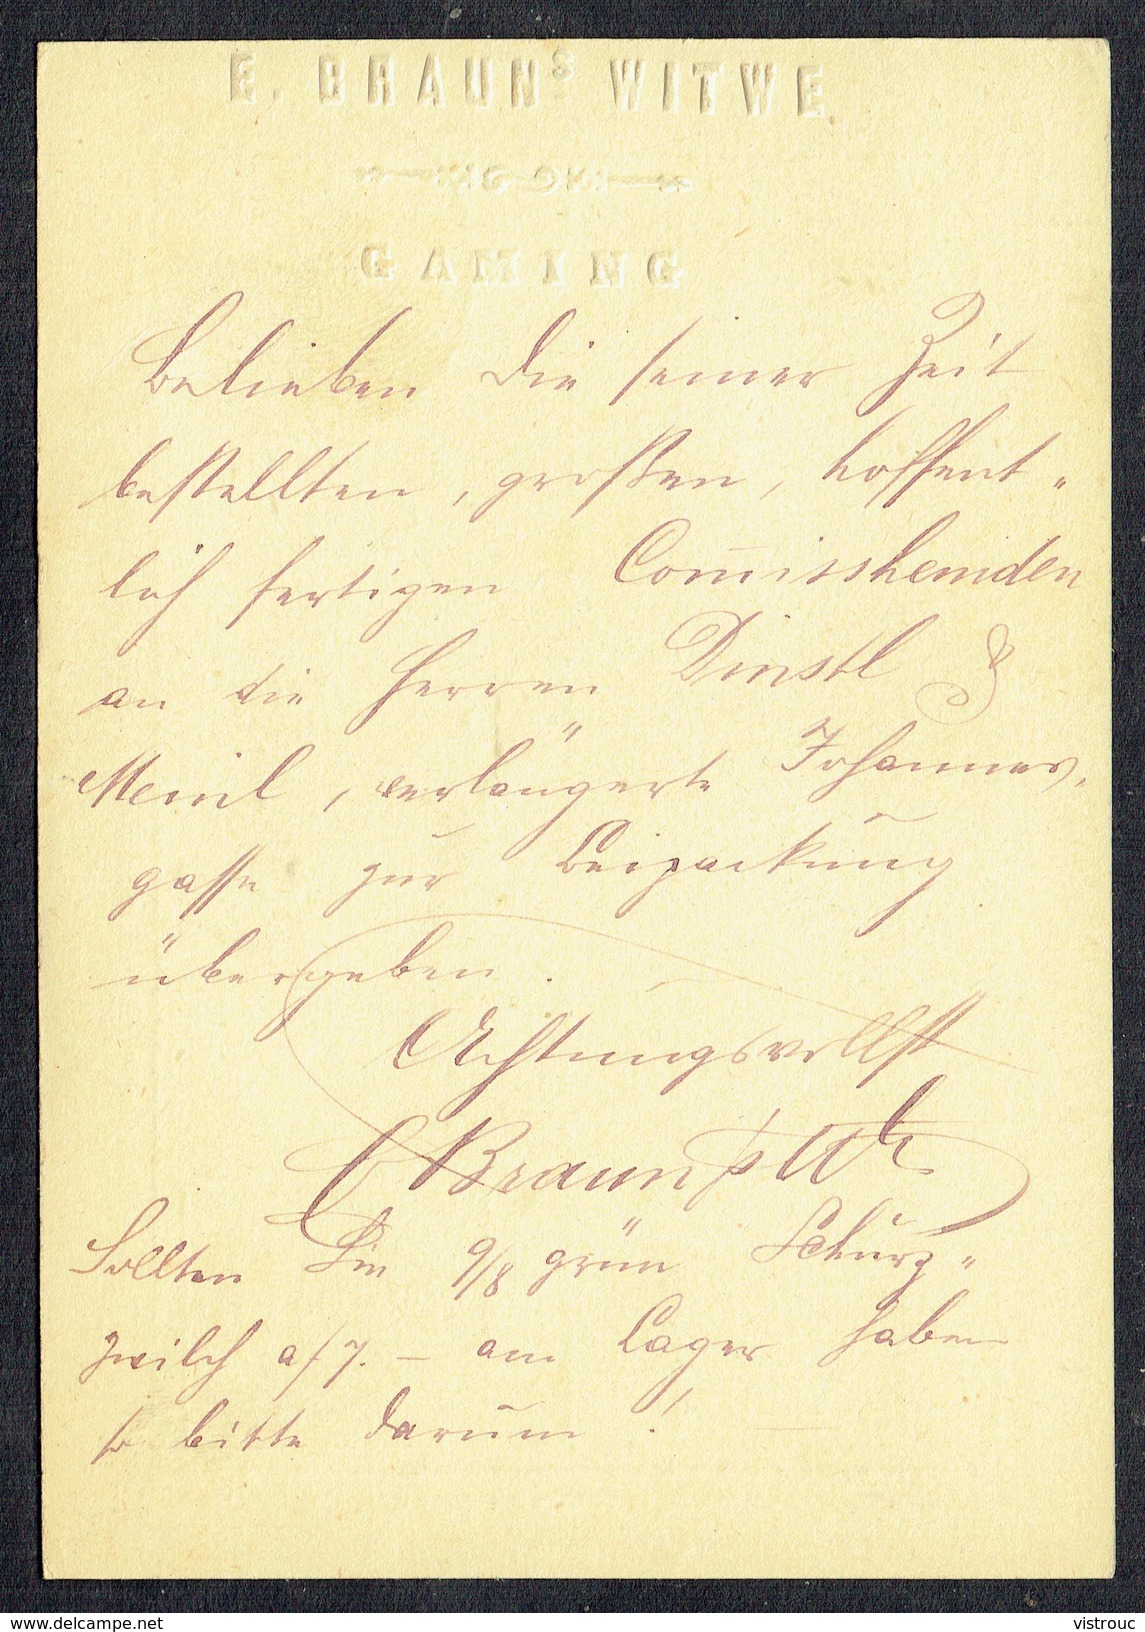 E. BRAUNS WITWE
GAMING
Belieben die seiner Zeit
bestellten, großen, hoffent=
lich fertigen Commisshemden
an die Herren Dinstl &
Meinl, verlängerte Johannes=
gasse zur Beipackung
übergeben.
Achtungsvollst
E Braun's Wwe
Sollten Sie 9/8 grün Schürz=
zwilch a/7. – am Lager haben
so bitte darum!
vistrouc